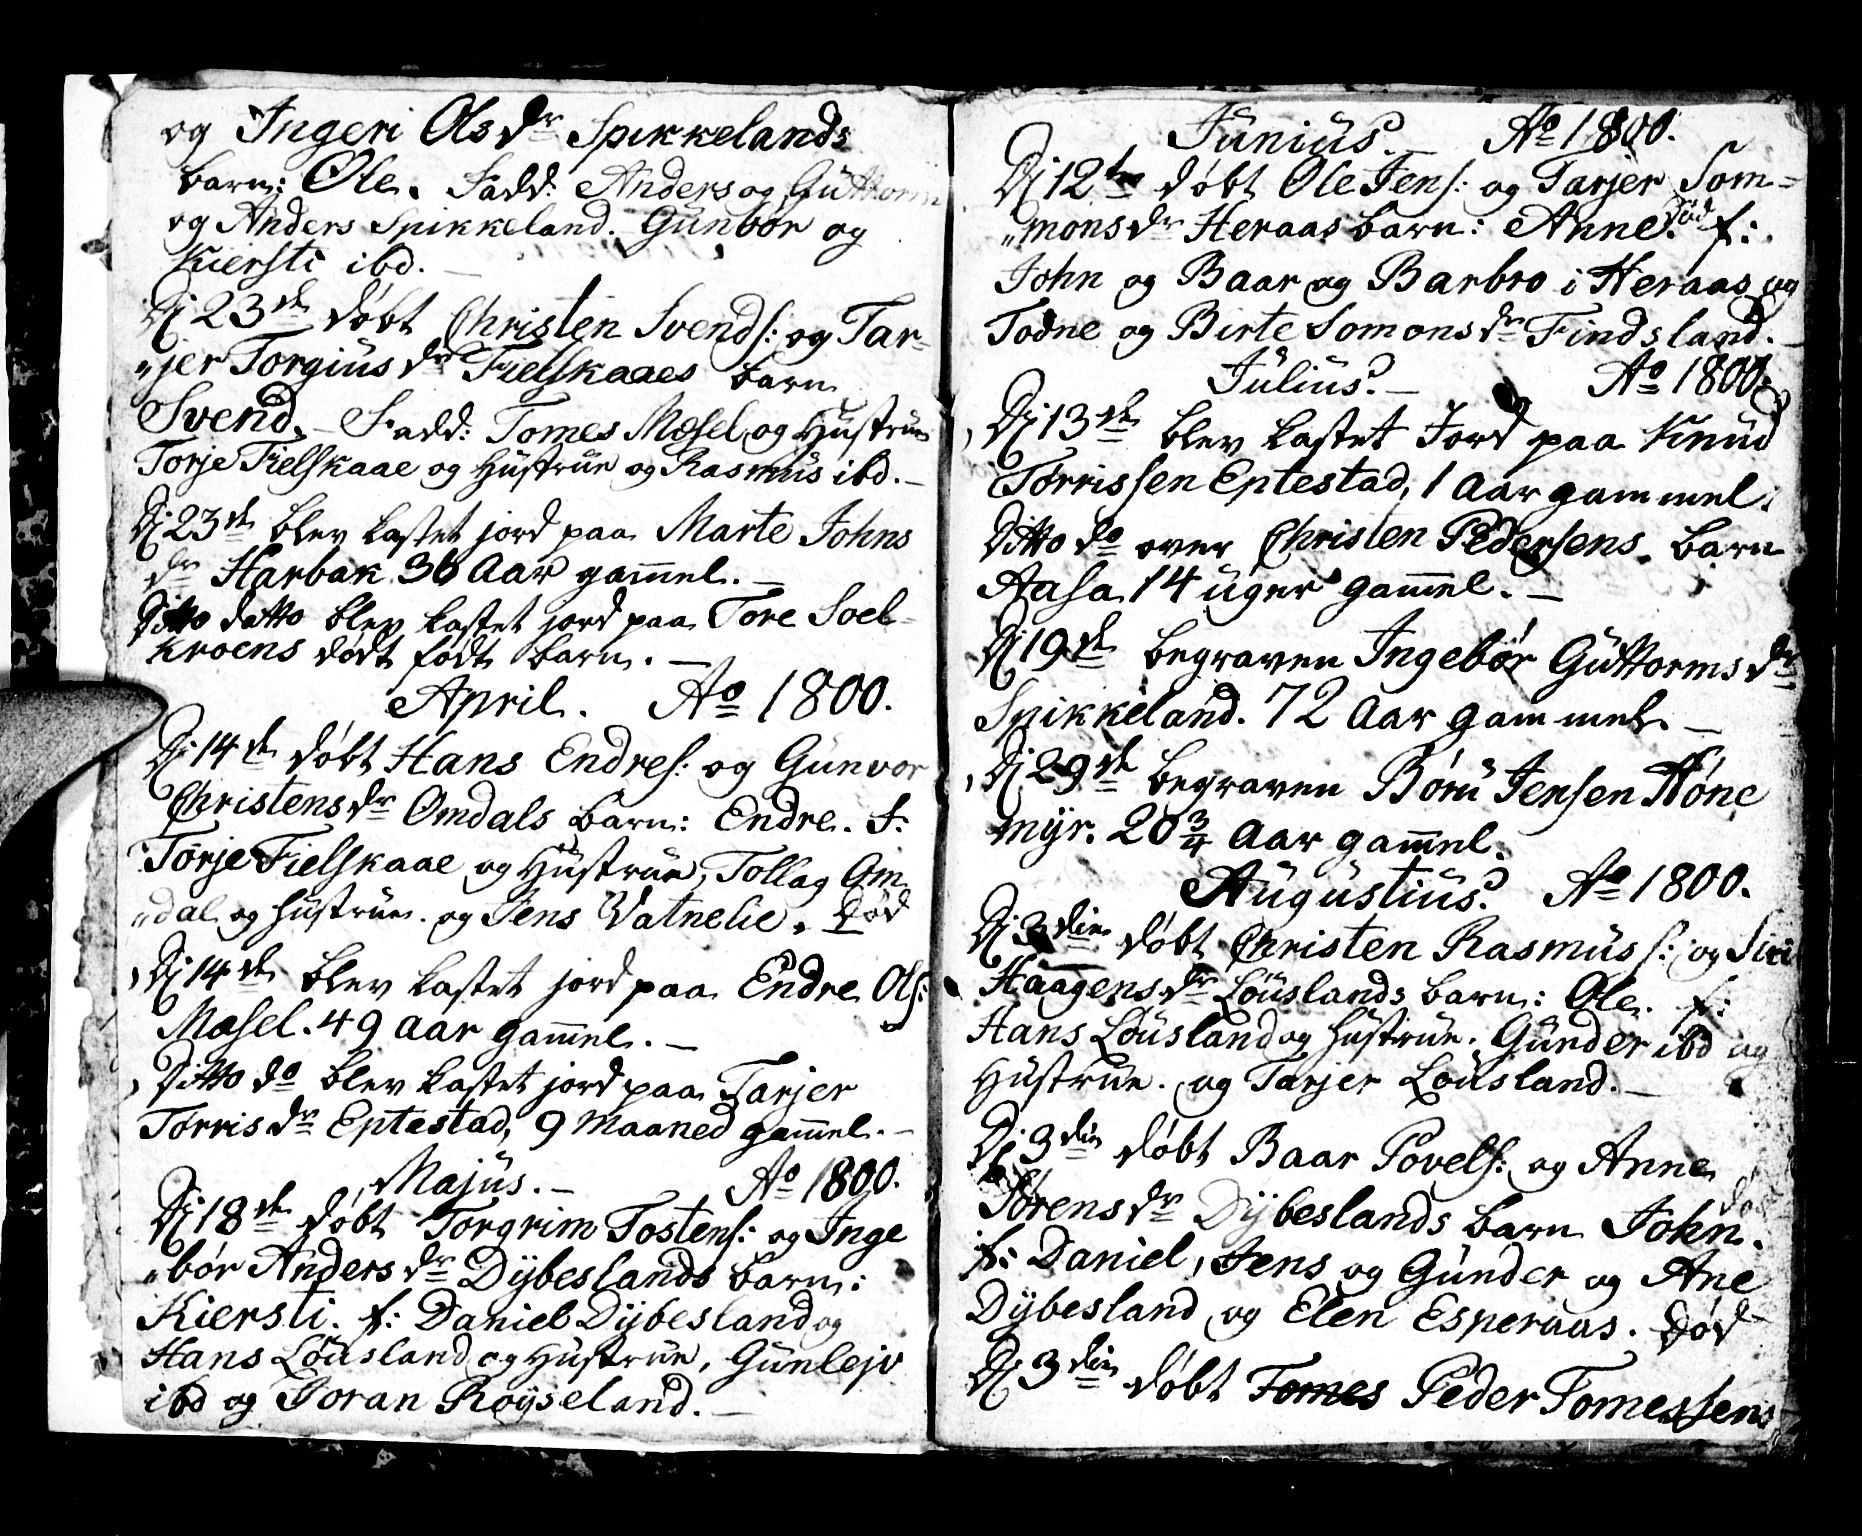 og Ingeri Olsdr Spikkelands
barn: Ole. Fadd: Anders og Guttorm
og Anders Spikkeland. Gunbor og
Kiersti ibd. —
Dj 23de døbt Christen Svends: og Tar-
„jer Torgiusdr Fielskaaes barn
Svend. – Fadd: Tomes Mosel og Hustrue
Torje Fielskaae og Hustrue og Rasmus ibd. –
Dj 23de blev kastet jord paa Marte Johns
dr Harbak 36 Aar gam̄el. —
Ditto datto blev kastet jord paa Tore Soel-
kroens dødt født barn. —
April. Ao 1800.
Dj 14de døbt Hans Endres: og Gunvor
Christensdr Omdals barn: Endre. F:
Torje Fielskaae og Hustrue, Tollag Om
„dal og Hustrue. og Jens Vatnelie. Død
Dj 14de blev kastet jord paa Endre Ols:
Mosel. 49 aar gam̄el. —
Ditto do blev kastet jord paa Tarjer
Torrisdr Eptestad, 9 Maaned gam̄el. —
Majus. — Ao 1800.
Dj 18de døbt Torgrim Tostens: og Inge
„bør Andersdr Dybeslands barn:
Kiersti. f: Daniel Dybesland og
Hans Løusland og Hustrue, Gunlejv
ibd og Joran Røyseland. —
Junius. — Ao 1800.
Dj 12te døbt Ole Jens: og Tarjer Som=
„monsdr Heraas barn: Anne. død f:
John og Baar og Barbro i Heraas og
Todne og Birte Somonsdr Findsland. —
Julius. — Ao 1800.
Dj 13de blev kastet Jord paa Knud
Torrissen Eptestad, 1 Aar gammel:
Ditto do over Christen Pedersens barn
Aasa 14 uger gam̄el. —
Dj 19de begraven Ingebør Guttormsdr
Spikkeland. 72 Aar gammel. —
Dj 29de begraven Børu Jensen Høne
myr. 20 3/4 Aar gam̄el.
Augustius. Ao 1800.
Dj 3die døbt Christen Rasmus s: og Siri
Haagensdr Løuslands barn: Ole. f:
Hans Løusland og Hustrue. Gunder ibd og
Hustrue. og Tarjer Løusland. —
Dj 3die døbt Baar Povels: og Anne
Sørensdr Dybeslands barn John. død
f: Daniel, Jens og Gunder og Ane
Dybesland og Elen Esperaas. Død
Dj 3die døbt Tomes Peder Tomessens